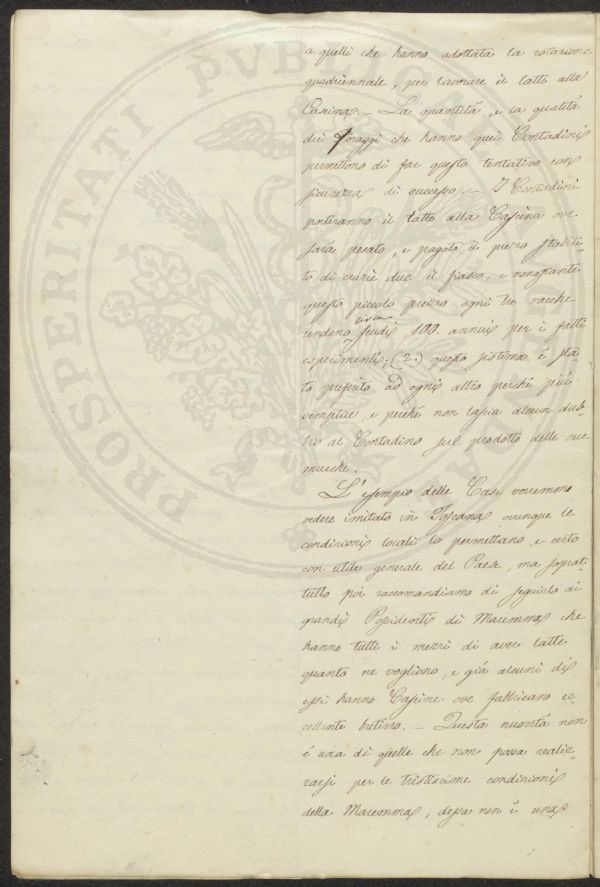 a quelli che hanno adottata la rotazione
quadriennale, per lavorare il latte alla
Cascina. – La quantità, e la qualità
dei foraggi che hanno quei Contadini
permettono di far questo tentativo con
sicurezza di successo. – I Contadini
porteranno il latte alla Cascina ove
sarà pesato, e pagato il prezzo stabili-
to di crazie due il fiasco, e nonostante
questo piccolo prezzo ogni tre vacche
rendono circa Scudi 100. annui per i fatti
esperimenti; (2.) questo sistema è sta-
to preferito ad ogni altro perché più
semplice, e perché non lascia alcun dub-
bio al Contadino sul prodotto delle sue
mucche.
L'esempio delle Case vorremmo
vedere imitato in Toscana ovunque le
condizioni locali lo permettano, e certo
con utile generale del Paese, ma soprat-
tutto poi raccomandiamo di seguirlo ai
grandi Possidenti di Maremma che
hanno tutti i mezzi di aver latte
quanto ne vogliono, e già alcuni di
essi hanno Cascine ove fabbricano ec-
cellente butirro. – Questa novità non
è una di quelle che non possa realiz-
zarsi per le tristissime condizioni
della Maremma, dessa non è una
PROSPERITATI PUBLICAE